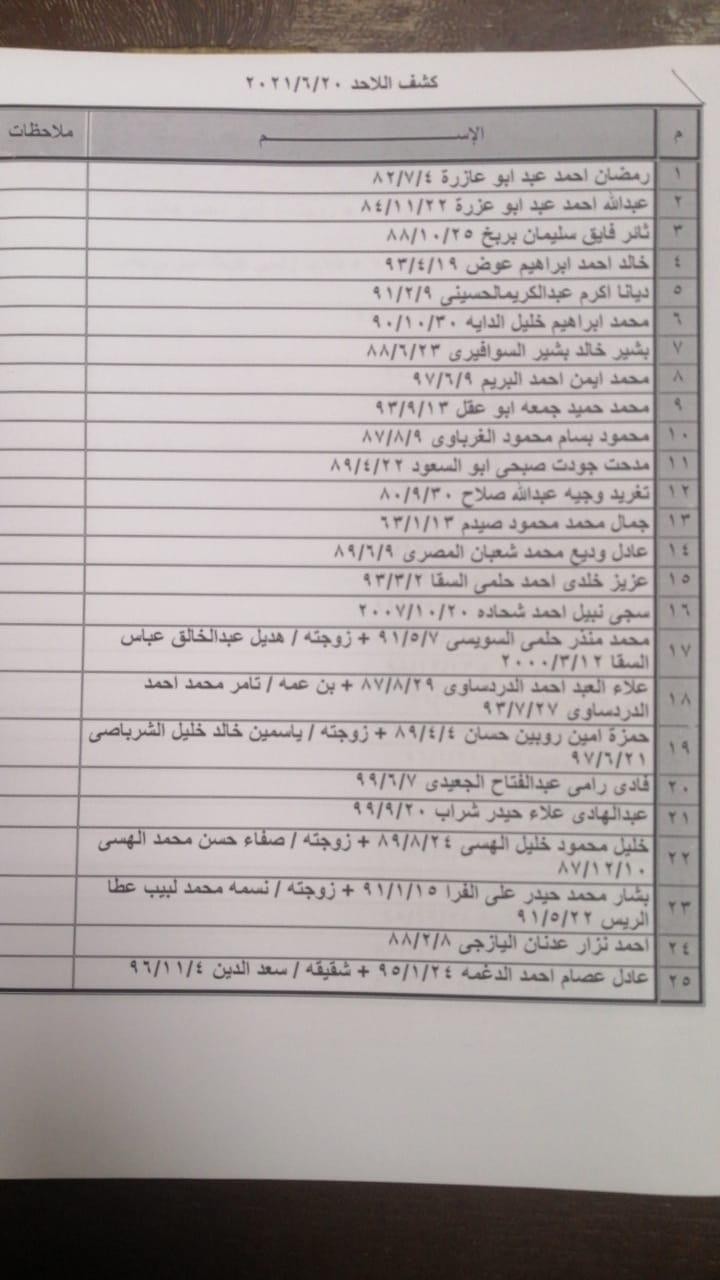 كشف اللاحد ٢٠٢١/٦/٢٠
م الإســـــــــم ملاحظات
١ رمضان احمد عبد ابو عازرة ٨٢/٧/٤
٢ عبدالله احمد عبد ابو عزرة ٨٤/١١/٢٢
٣ ثائر فايق سليمان بربخ ٨٨/١٠/٢٥
٤ خالد احمد ابراهيم عوض ٩٣/٤/١٩
٥ ديانا اكرم عبدالكريمالحسينى ٩١/٢/٩
٦ محمد ابراهيم خليل الدايه ٩٠/١٠/٣٠
٧ بشير خالد بشير السوافيرى ٨٨/٦/٢٣
٨ محمد ايمن احمد البريم ٩٧/٦/٩
٩ محمد حميد جمعه ابو عقل ٩٣/٩/١٣
١٠ محمود بسام محمود الغرباوى ٨٧/٨/٩
١١ مدحت جودت صبحى ابو السعود ٨٩/٤/٢٢
١٢ تغريد وجيه عبدالله صلاح ٨٠/٩/٣٠
١٣ جمال محمد محمود صيدم ٦٣/١/١٣
١٤ عادل وديع محمد شعبان المصرى ٨٩/٦/٩
١٥ عزيز خلدى احمد حلمى السقا ٩٣/٣/٢
١٦ سجى نبيل احمد شحاده ٢٠٠٧/١٠/٢٠
١٧ محمد منذر حلمى السويسى ٩١/٥/٧ + زوجته / هديل عبدالخالق عباس
السقا ٢٠٠٠/٣/١٢
١٨ علاء العبد احمد الدردساوى ٨٧/٨/٢٩ + بن عمه / تامر محمد احمد
الدردساوى ٩٣/٧/٢٧
١٩ حمزة امين روبين حسان ٨٩/٤/٤ + زوجته / ياسمين خالد خليل الشرباصى
٩٧/٦/٢١
٢٠ فادى رامى عبدالفتاح الجعيدى ٩٩/٦/٧
٢١ عبدالهادى علاء حيدر شراب ٩٩/٩/٢٠
٢٢ خليل محمود خليل الهسى ٨٩/٨/٢٤ + زوجته / صفاء حسن محمد الهسى
٨٧/١٢/١٠
٢٣ بشار محمد حيدر على الفرا ٩١/١/١٥ + زوجته / نسمه محمد لبيب عطا
الريس ٩١/٥/٢٢
٢٤ احمد نزار عدنان اليازجى ٨٨/٢/٨
٢٥ عادل عصام احمد الدغمه ٩٥/١/٢٤ + شقيقه / سعد الدين ٩٦/١١/٤